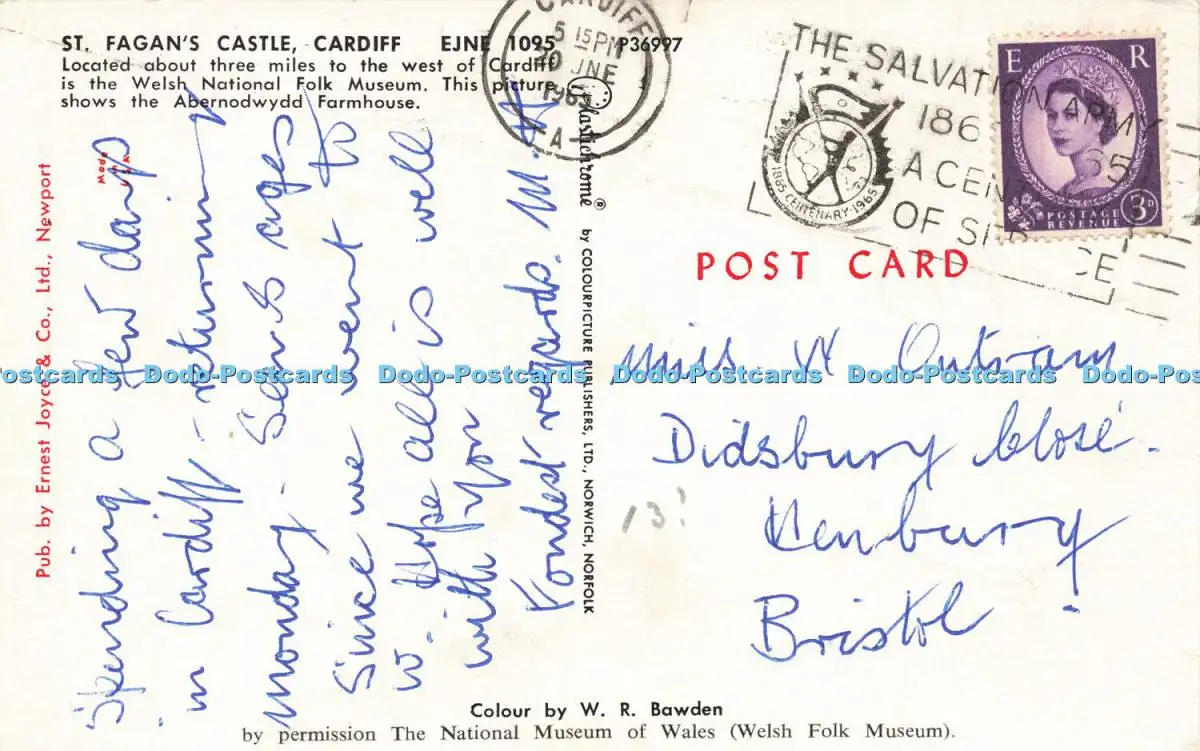 ST. FAGAN'S CASTLE, CARDIFF EJNE 1095 P36997
Located about three miles to the west of Cardiff
is the Welsh National Folk Museum. This picture
shows the Abernodwydd Farmhouse.
Pub. by Ernest Joyce & Co., Ltd., Newport
Made
USA
Spending a few days
in Cardiff - returning
Monday - Seems ages
since we went to
W. Hope all is well
with you
Fondest regards. M.
Plastichrome® by COLOURPICTURE PUBLISHERS, LTD., NORWICH, NORFOLK
CARDIFF
5 15 PM
JNE
1965
A
THE SALVATION ARMY
186 65
A CEN
OF SE CE
1865 CENTENARY 1965
E R
POSTAGE
REVENUE
3D
POST CARD
Miss W Outram
Didsbury Close.
Henbury
Bristol
13?
Colour by W. R. Bawden
by permission The National Museum of Wales (Welsh Folk Museum).
Postcards Dodo-Postcards Dodo-Postcards Dodo-Postcards Dodo-Postcards Dodo-Post